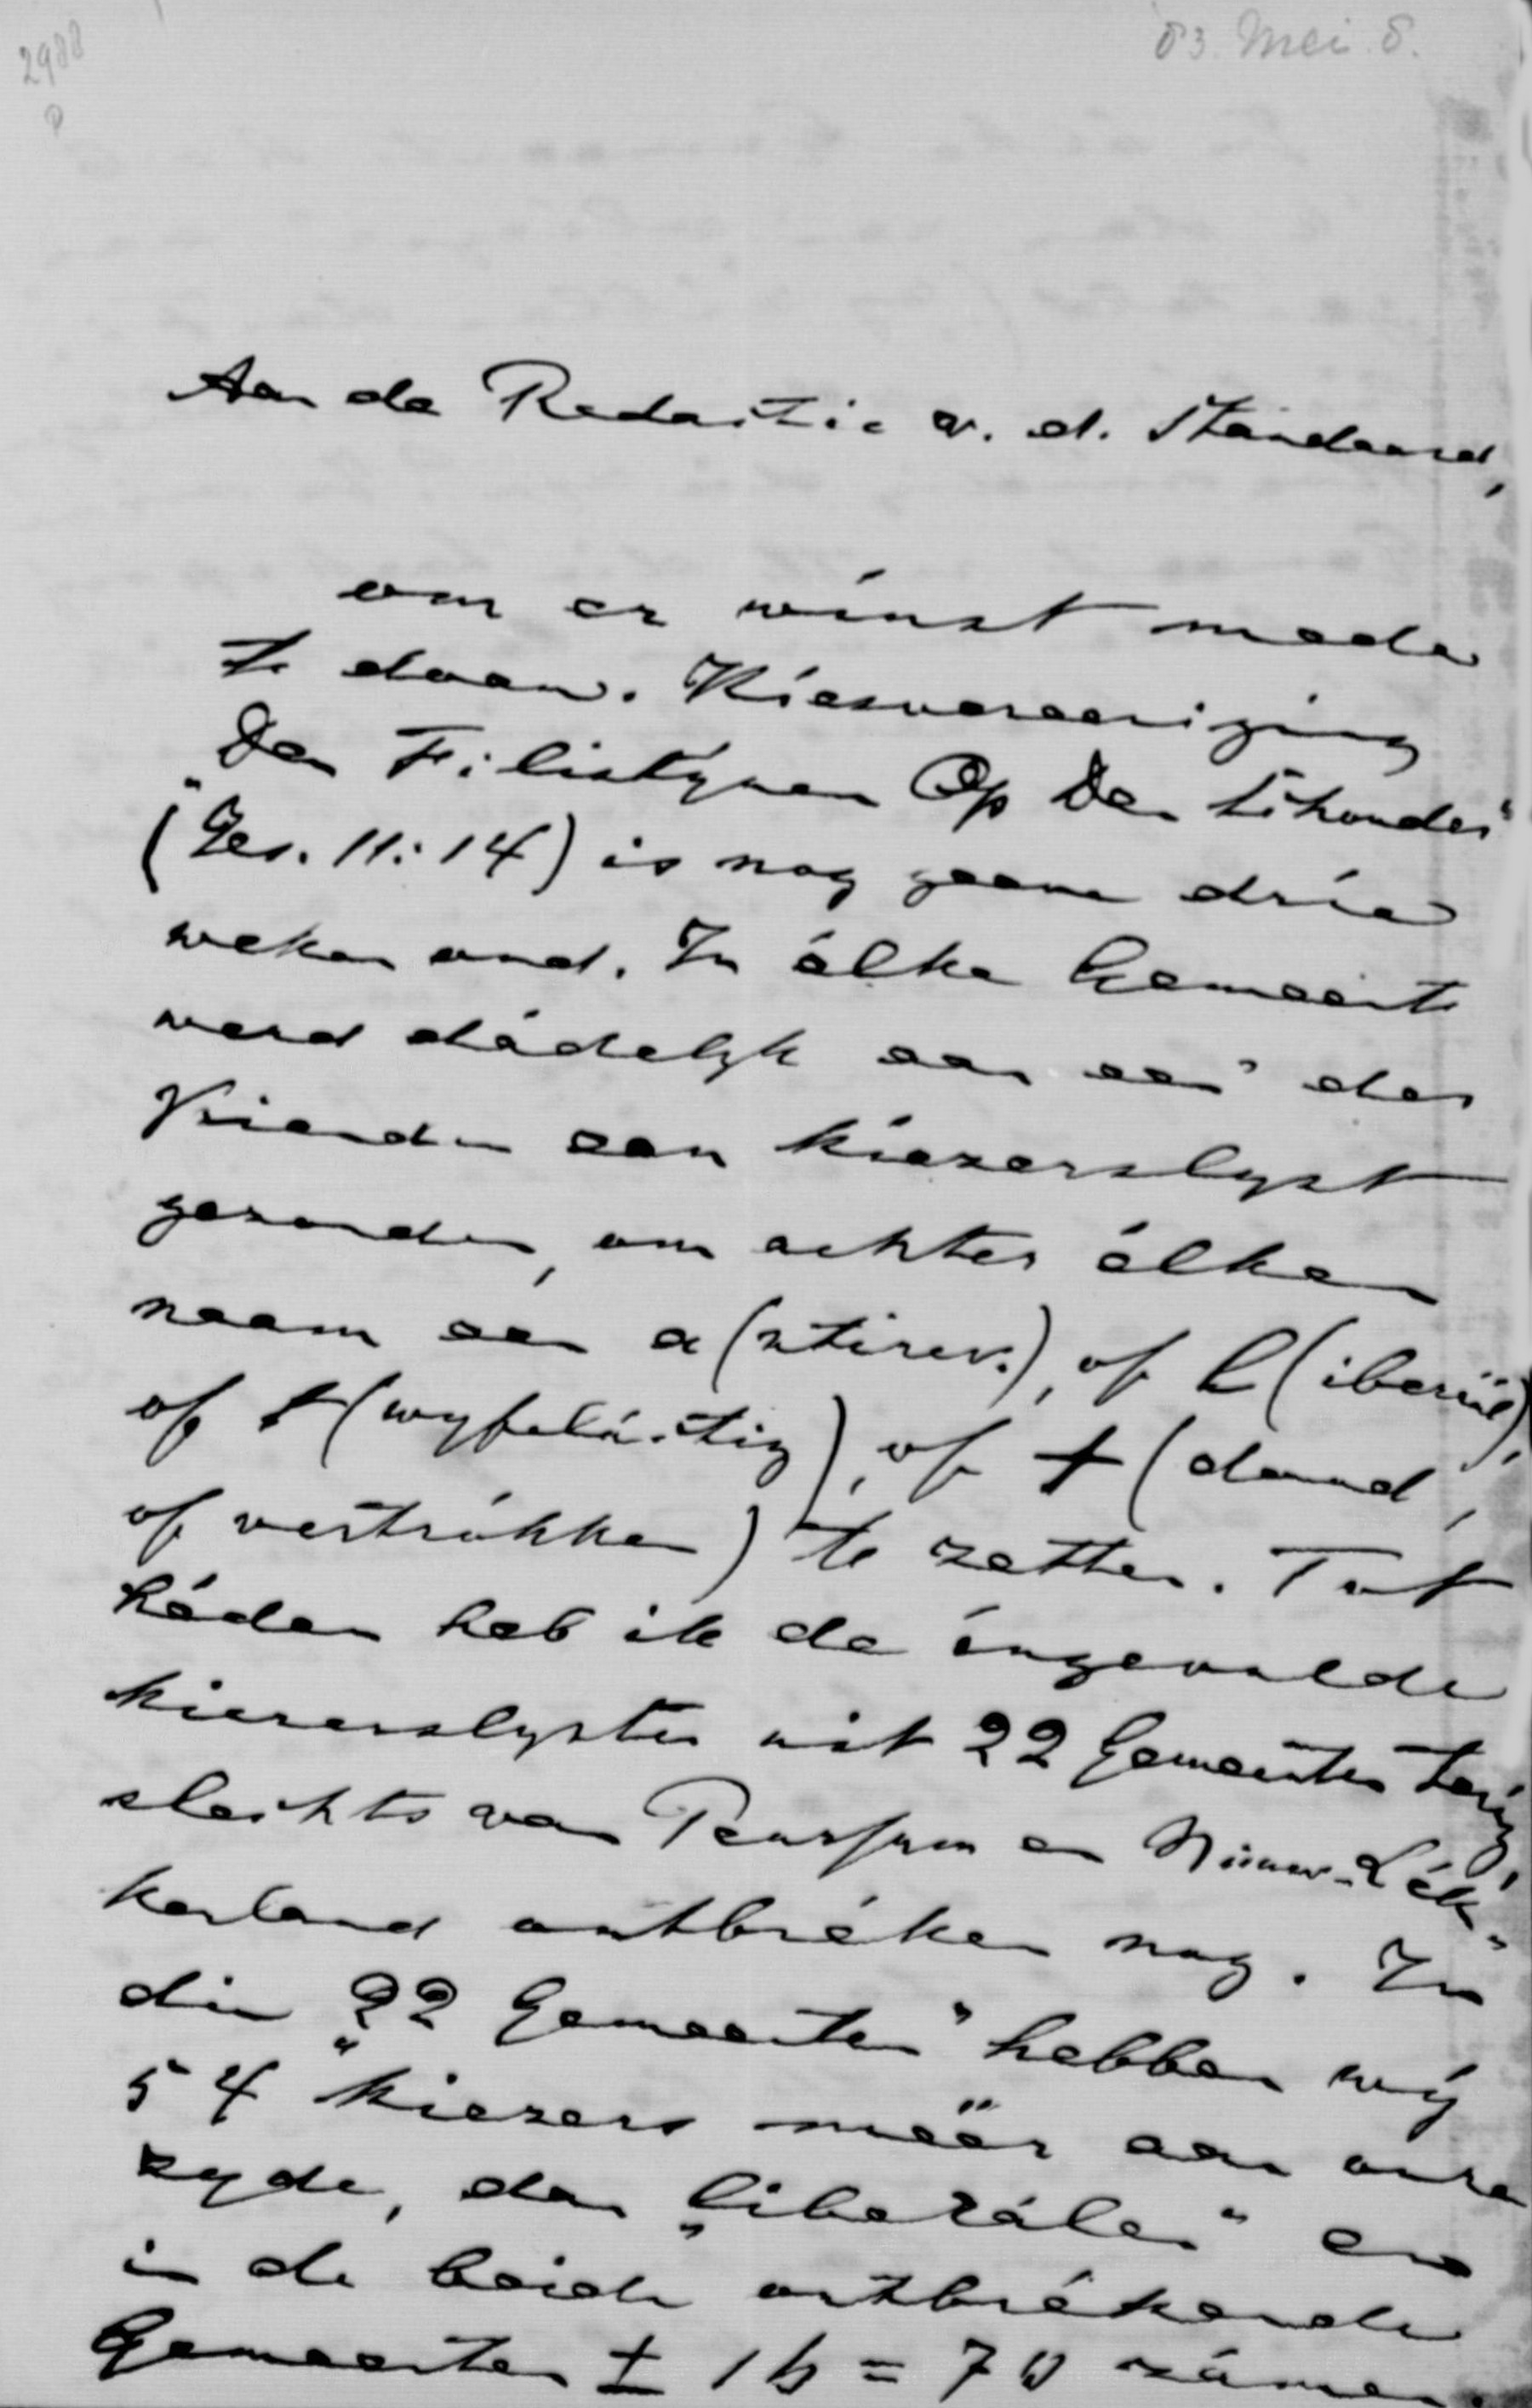 2988
83. Mei. 8.
Aan de Redactie v. d. Standaard,
om er winst mede
te doen. Kiesvereeniging
„Den Filistynen Op Den Schouder"
(Jes. 11:14) is nog geene drie
weken oud. In élke Gemeente
werd dádelyk aan een der
Vrienden een kiezerslyst
gezonden, om achter élken
naam een a(ntirev.), of l(iberáál),
of t(wyfeláchtig), of † (dood,
of vertrókken) te zetten. Tot
héden heb ik de íngevulde
kiezerslysten uit 22 Gemeenten terúg,
slechts van Peursum en Nieuw-Lék-
kerland ontbréken nog. In
die „22 Gemeenten" hebben wý
54 kiezers méér aan onze
zyde, dan „liberálen" en
in de beide ontbrékende
Gemeenten ± 16 = 70 zámen.